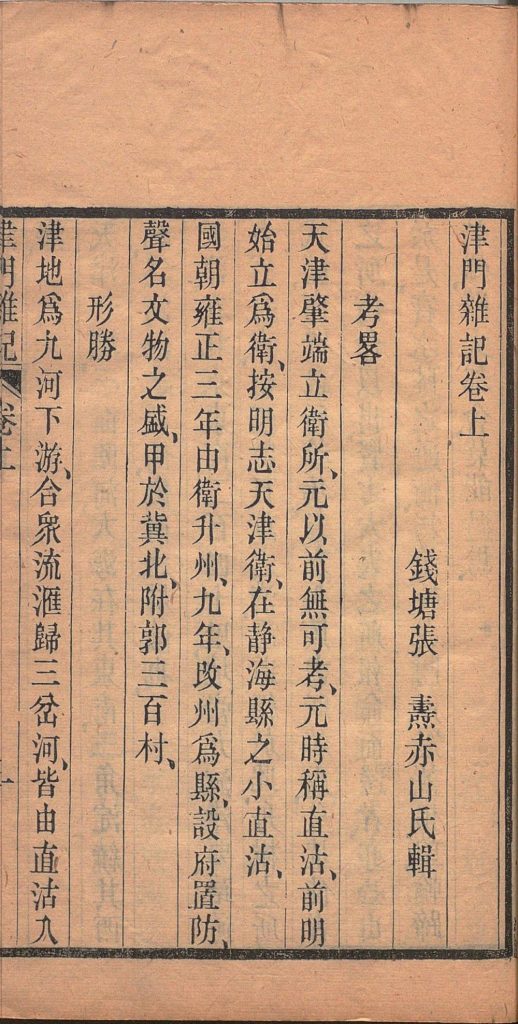 津門雜記卷上
錢塘張　燾赤山氏輯
考畧
天津肇端立衛所、元以前無可考、元時稱直沽、前明
始立爲衛、按明志天津衛、在靜海縣之小直沽、
國朝雍正三年由衛升州、九年、改州爲縣、設府置防、
聲名文物之盛、甲於冀北、附郭三百村、
形勝
津地爲九河下游、合衆流滙歸三岔河、皆由直沽入
津門雜記 卷上 一